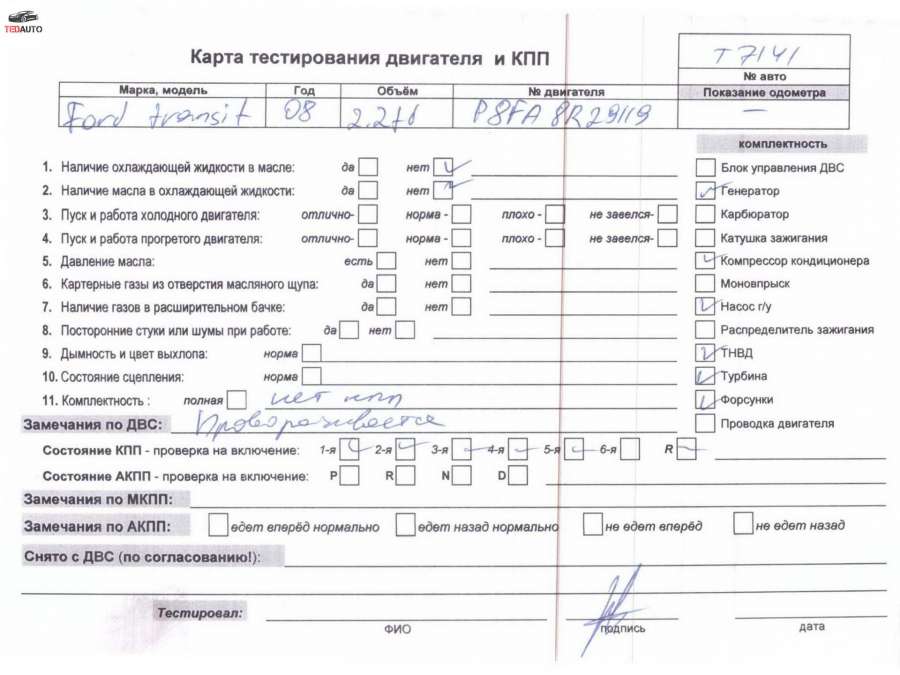 TEDAUTO
Карта тестирования двигателя и КПП
T 7141
№ авто
Марка, модель Год Объём № двигателя Показание одометра
Ford transit 08 2.2td P8FA 8R29119 —
комплектность
1. Наличие охлаждающей жидкости в масле: да нет
Блок управления ДВС
2. Наличие масла в охлаждающей жидкости: да нет
Генератор
3. Пуск и работа холодного двигателя: отлично- норма - плохо - не завелся-
Карбюратор
4. Пуск и работа прогретого двигателя: отлично- норма - плохо - не завелся-
Катушка зажигания
5. Давление масла: есть нет
Компрессор кондиционера
6. Картерные газы из отверстия масляного щупа: да нет
Моновпрыск
7. Наличие газов в расширительном бачке: да нет
Насос г/у
8. Посторонние стуки или шумы при работе: да нет
Распределитель зажигания
9. Дымность и цвет выхлопа: норма
ТНВД
10. Состояние сцепления: норма
Турбина
11. Комплектность : полная нет кпп
Форсунки
Замечания по ДВС: Проворачивается
Проводка двигателя
Состояние КПП - проверка на включение: 1-я 2-я 3-я 4-я 5-я 6-я R
Состояние АКПП - проверка на включение: P R N D
Замечания по МКПП:
Замечания по АКПП: едет вперёд нормально едет назад нормально не едет вперёд не едет назад
Снято с ДВС (по согласованию!):
Тестировал:
ФИО подпись дата